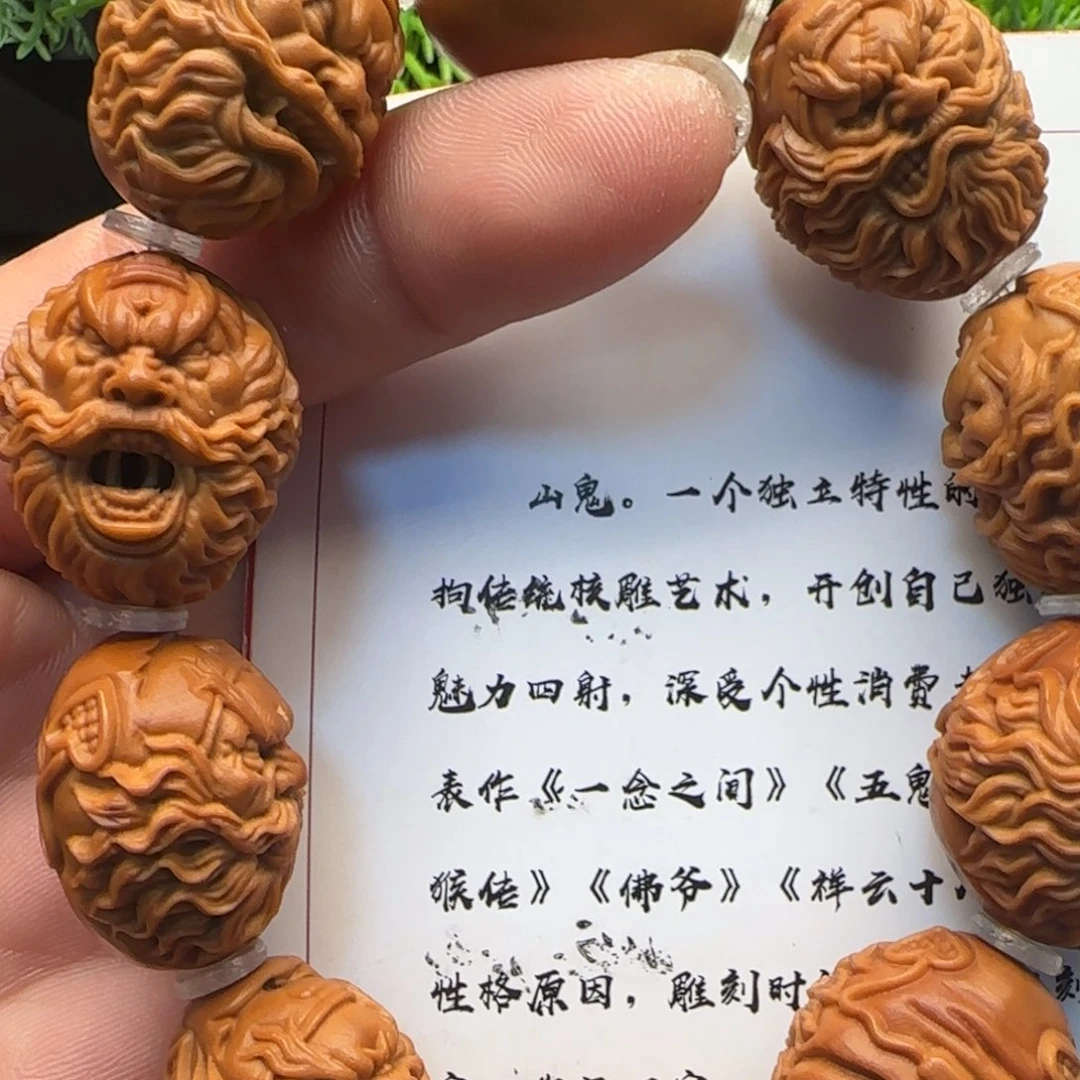 山鬼。一个独立特性的
拘传统核雕艺术，开创自己独
魅力四射，深受个性消费
表作《一念之间》《五鬼
猴传》《佛爷》《祥云十八
性格原因，雕刻时 刻